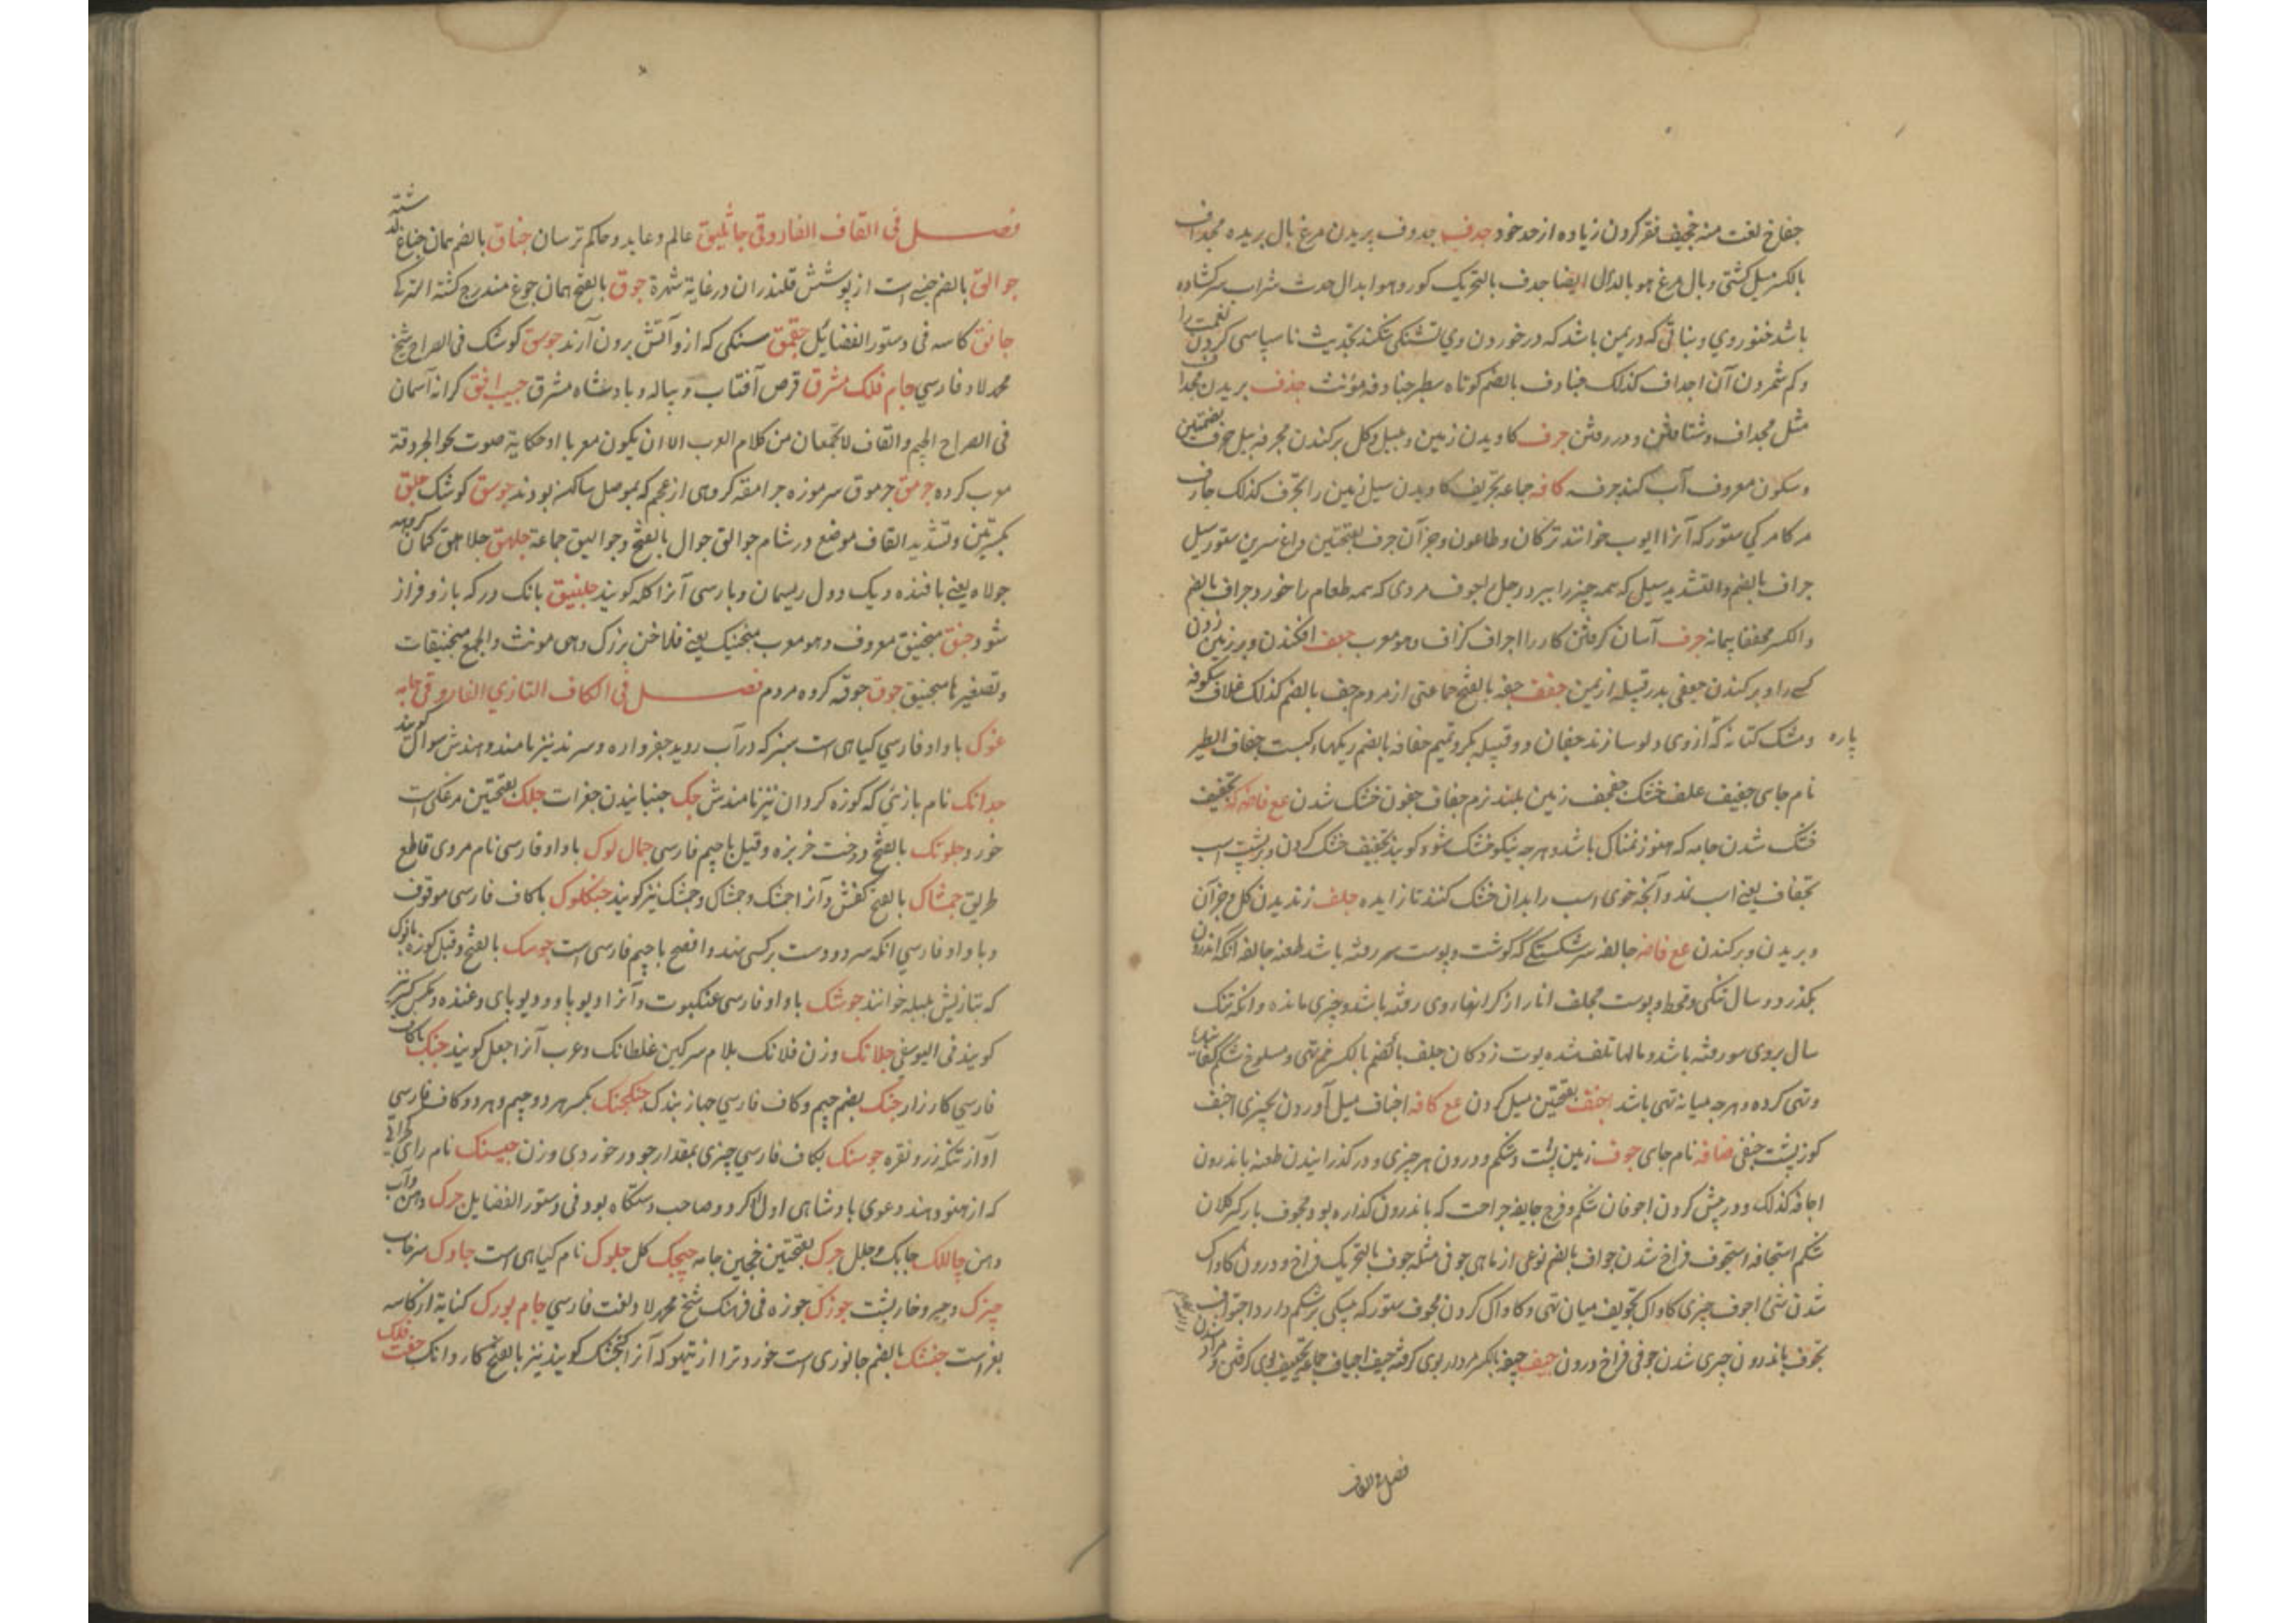 جفاخ لغت منه جخیف فقر کردن زیاده از حد خود جدف جدوف پریدن مرغ بال بریده مجداف
بالکسر بیل کشتی و بال مرغ هو بالدال ایضا جدف بالتحریک کور و هو ابدال جدث شراب سرکشاده
باشد خنور وی و نباتی که در یمن باشد که در خوردن وی تشنکی نکند تجدیف ناسپاسی کردن نعمت را
و کم شمردن آن اجداف کذلک جنادف بالضم کوتاه سطبر جنادفه مؤنث جذف بریدن مجذاف
مثل مجداف و شتافتن و در رفتن جرف کاویدن زمین و ببیل کل برکندن مجرفه بیل جرف بضمتین
و سکون معروف آب کند جرفه کافه جماعه تجریف کاویدن سیل زمین را تجرف کذلک جارف
مرکامرکی ستور که آنرا ایوب خوانند ترکان و طاعون و جز آن جرف بفتحتین داغ سرین ستور سیل
جراف بالضم والتشدید سیلی که همه چیز را ببرد رجل جروف مردی که همه طعام را خورد جراف بالضم
والکسر مخففا پیمانه جرف آسان کرفتن کار را اجراف کزاف و هو معرب جعف افکندن و بر زمین زدن
کسی را و برکندن جعفی پدر قبیله از یمن جفف جفه بالفتح جماعتی از مردم جف بالضم کذلک غلاف شکوفه
و مشک کهنه پاره که از وی دلو سازند جفان دو قبیله بکر و تمیم جفافه بالضم ریکهاء کبست جفاف الطیر
نام جای جفیف علف خشک جفجف زمین بلند نرم جفاف جفون خشک شدن عع فاضه که تجفیف
خشک شدن جامه که هنوز نمناک باشد و هرچه نیکو خشک شود کویند تجفیف خشک کردن و بر پشت اسب
تجفاف یعنی اسب نمد و آنچه خوی اسب را بدان خشک کنند تا زایده جلف رندیدن کل و جز آن
و بریدن و برکندن عع فاضه جالفه سر شکستکی که کوشت و پوست سر رفته باشد طعنه جالفه آنکه اندرون
بکذرد و سال تنکی و قحط و پوست مجلف انار از کرانهاء وی رفته باشد و چیزی مانده و آنکه تنک
سال بروی مو رفته باشد و مالها تلف شده پوت زدکان جلف بالضم بالکسر خم تهی و مسلوخ شکم
و تهی کرده و هرچه میانه تهی باشد اجنف بفتحتین میل کردن عع کافه اجناف میل آوردن بچیزی اجنف
کوزپشت جنفی مضافه نام جای جوف زمین پست و شکم و درون هر چیزی و درکذرانیدن طعنه باندرون
اجافه کذلک و درپیش کردن اجوفان شکم و فرج جایفه جراحت که باندرون کذاره بود مجوف بارکیر کلان
شکم استجافه استجوف فراخ شدن جواف بالضم نوعی از ماهی جوفی مثله جوف بالتحریک فراخ و درون کاواک
شدن شیء اجوف چیزی کاواک تجویف میان تهی و کاواک کردن مجوف ستور که سپیدکی بر شکم دارد اجتواف
تجوف باندرون چیزی شدن جوفی فراخ درون جیف جیفه بالکسر مردار بوی کرفته جیف اجیاف جماعه تجییف بوی کرفتن مردار
فصل فی القاف
فصل فی القاف الفاروقی جاثلیق عالم و عابد و حاکم ترسان جناق بالضم همان جناغ کذشته
جوالق بالضم جنسی است از پوشش قلندران در غایة شهرة جوق بالفتح همان جوغ مندرج کشته الترکی
جانق کاسه فی دستور الفضایل جقمق سنکی که ازو آتش برون آرند جوسق کوشک فی الصراح شیخ
محمد لاد فارسی جام فلک مشرق قرص آفتاب و پیاله و بادشاه مشرق جیب افق کرانه آسمان
فی الصراح الجیم والقاف لا تجتمعان من کلام العرب الا ان یکون معربا او حکایة صوت نحو الجردقة
معرب کرده جرمق جرموق سرموزه جرامقه کروهی از عجم که بموصل ساکن بودند جوسق کوشک جلق
بکسرتین و تشدید القاف موضع در شام جوالق جوال بالفتح و جوالیق جماعة جلهق جلاهق کمان کروهه
جولاه یعنی بافنده و یک دول ریسمان و بپارسی آنرا کلّه کویند جلنبلق بانک در که باز و فراز
شود جنق منجنیق معروف و هو معرب منجنیک یعنی فلاخن بزرک و هی مونث والجمع منجنیقات
و تصغیرها مجینیق جوق جوقه کروه مردم فصل فی الکاف التازی الفاروقی جامه
غوک با واو فارسی کیاهی است سبز که در آب روید جغزواره و سرند نیز نامند و هندش سوال کویند
جدانک نام بازیی که کوزه کردان نیز نامندش جک جنبانیدن جغرات جلک بفتحتین مرغکی است
خورد جلونک بالفتح درخت خربزه و قیل با جیم فارسی جمال لوک با واو فارسی نام مردی قاطع
طریق جمشاک بالفتح کفش و آنرا جمشک و جمشاک و جمشک نیز کویند جنکلوک با کاف فارسی موقوف
و با واو فارسی آنکه سر دو دست بر کسی نهند و افصح با جیم فارسی است جوسک بالفتح و قیل کوزه بانوک
که بتازیش بلبله خوانند جوشک با واو فارسی عنکبوت و آنرا دیو پا و دیو پای و غنده و مکس کیر نیز
کویند فی الیوسفی جلانک وزن فلانک بلام سرکین غلطانک و عرب آنرا جعل کویند جنک باکاف
فارسی کارزار جنک بضم جیم و کاف فارسی جهاز بندک جنکجنک بکسر هر دو جیم و هر دو کاف فارسی
آواز تنکه زر و نقره جوسنک بکاف فارسی چیزی بمقدار جو در خوردی وزن جیسنک نام رای
که از هنود هند دعوی بادشاهی اول او کرد و صاحب دستکاه بود فی دستور الفضایل جرک دهن و آب
دهن چالاک چابک و جلل جرک بفتحتین جخین جامه جیجک کل جلوک نام کیاهی است جاوک سرخاب
جیزک و جیرو خارپشت جوزک جوزه فی فرهنک شیخ محمد لاد لغت فارسی جام بورک کنایة از کاسه
بغراست جفشک بالضم جانوری است خوردتر از تیهو که آنرا کنجشک کویند نیز بالفتح کاردانک جفت فلک